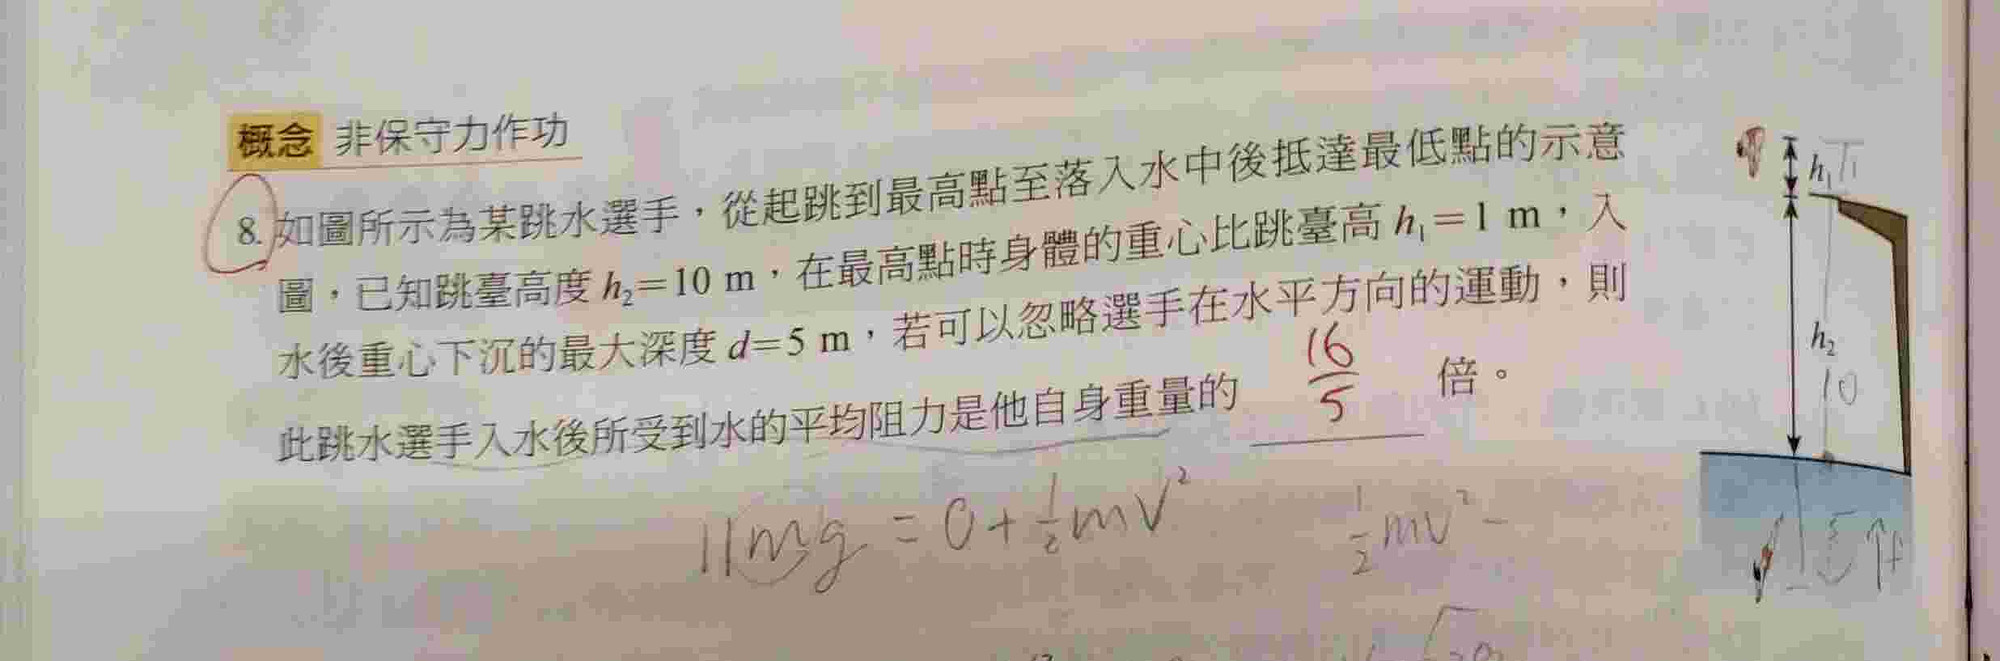 概念 非保守力作功
8. 如圖所示為某跳水選手，從起跳到最高點至落入水中後抵達最低點的示意
圖，已知跳臺高度 h₂=10 m，在最高點時身體的重心比跳臺高 h₁=1 m，入
水後重心下沉的最大深度 d=5 m，若可以忽略選手在水平方向的運動，則
此跳水選手入水後所受到水的平均阻力是他自身重量的 16/5 倍。
11mg = 0 + 1/2 mv²
1/2 mv² -
h₁
h₂
10
5 ↑f